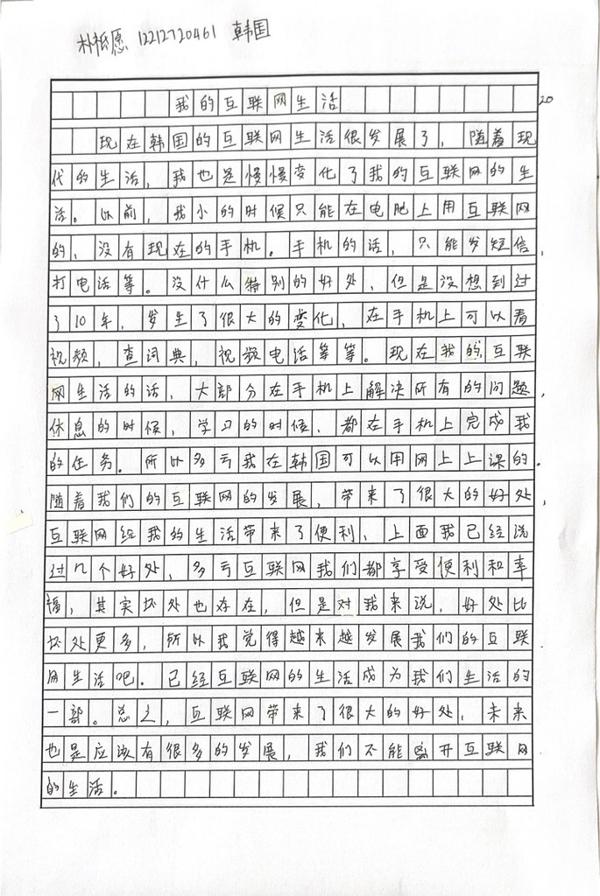 朴祗愿 12212720461 韩国
我的互联网生活
20
现在韩国的互联网生活很发展了，随着现
代的生活，我也是慢慢变化了我的互联网的生
活。以前，我小的时候只能在电脑上用互联网
的，没有现在的手机。手机的话，只能发短信，
打电话等。没什么特别的好处，但是没想到过
了10年，发生了很大的变化，在手机上可以看
视频，查词典，视频电话等等。现在我的互联
网生活的话，大部分在手机上解决所有的问题，
休息的时候，学习的时候，都在手机上完成我
的任务。所以多亏我在韩国可以用网上上课的。
随着我们的互联网的发展，带来了很大的好处，
互联网给我的生活带来了便利，上面我已经说
过几个好处，多亏互联网我们都享受便利和幸
福，其实坏处也存在，但是对我来说，好处比
坏处更多，所以我觉得越来越发展我们的互联
网生活吧。已经互联网的生活成为我们生活的
一部。总之，互联网带来了很大的好处，未来
也是应该有很多的发展，我们不能离开互联网
的生活。